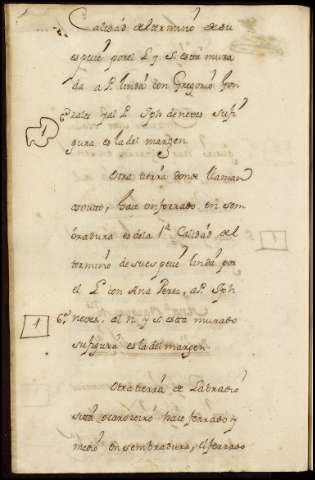 Calidad del termino de su
especie por el L. y S. esta mura
da a P. linda con Gregorio Gon
zales y al L. Jph de neves Sufi
gura es la del margen
1
Otra tierra donde llaman
couto, hace un ferrado en sem
bradura es de la 1ª Calidad del
termino de su especie linda por
el L. con Ana Perez, a P. Jph
neves. al n. y s. esta murado
su figura es la del margen
1
Otra tierra de Labradio
sita hace ferrado y
medio en sembradura, el ferrado